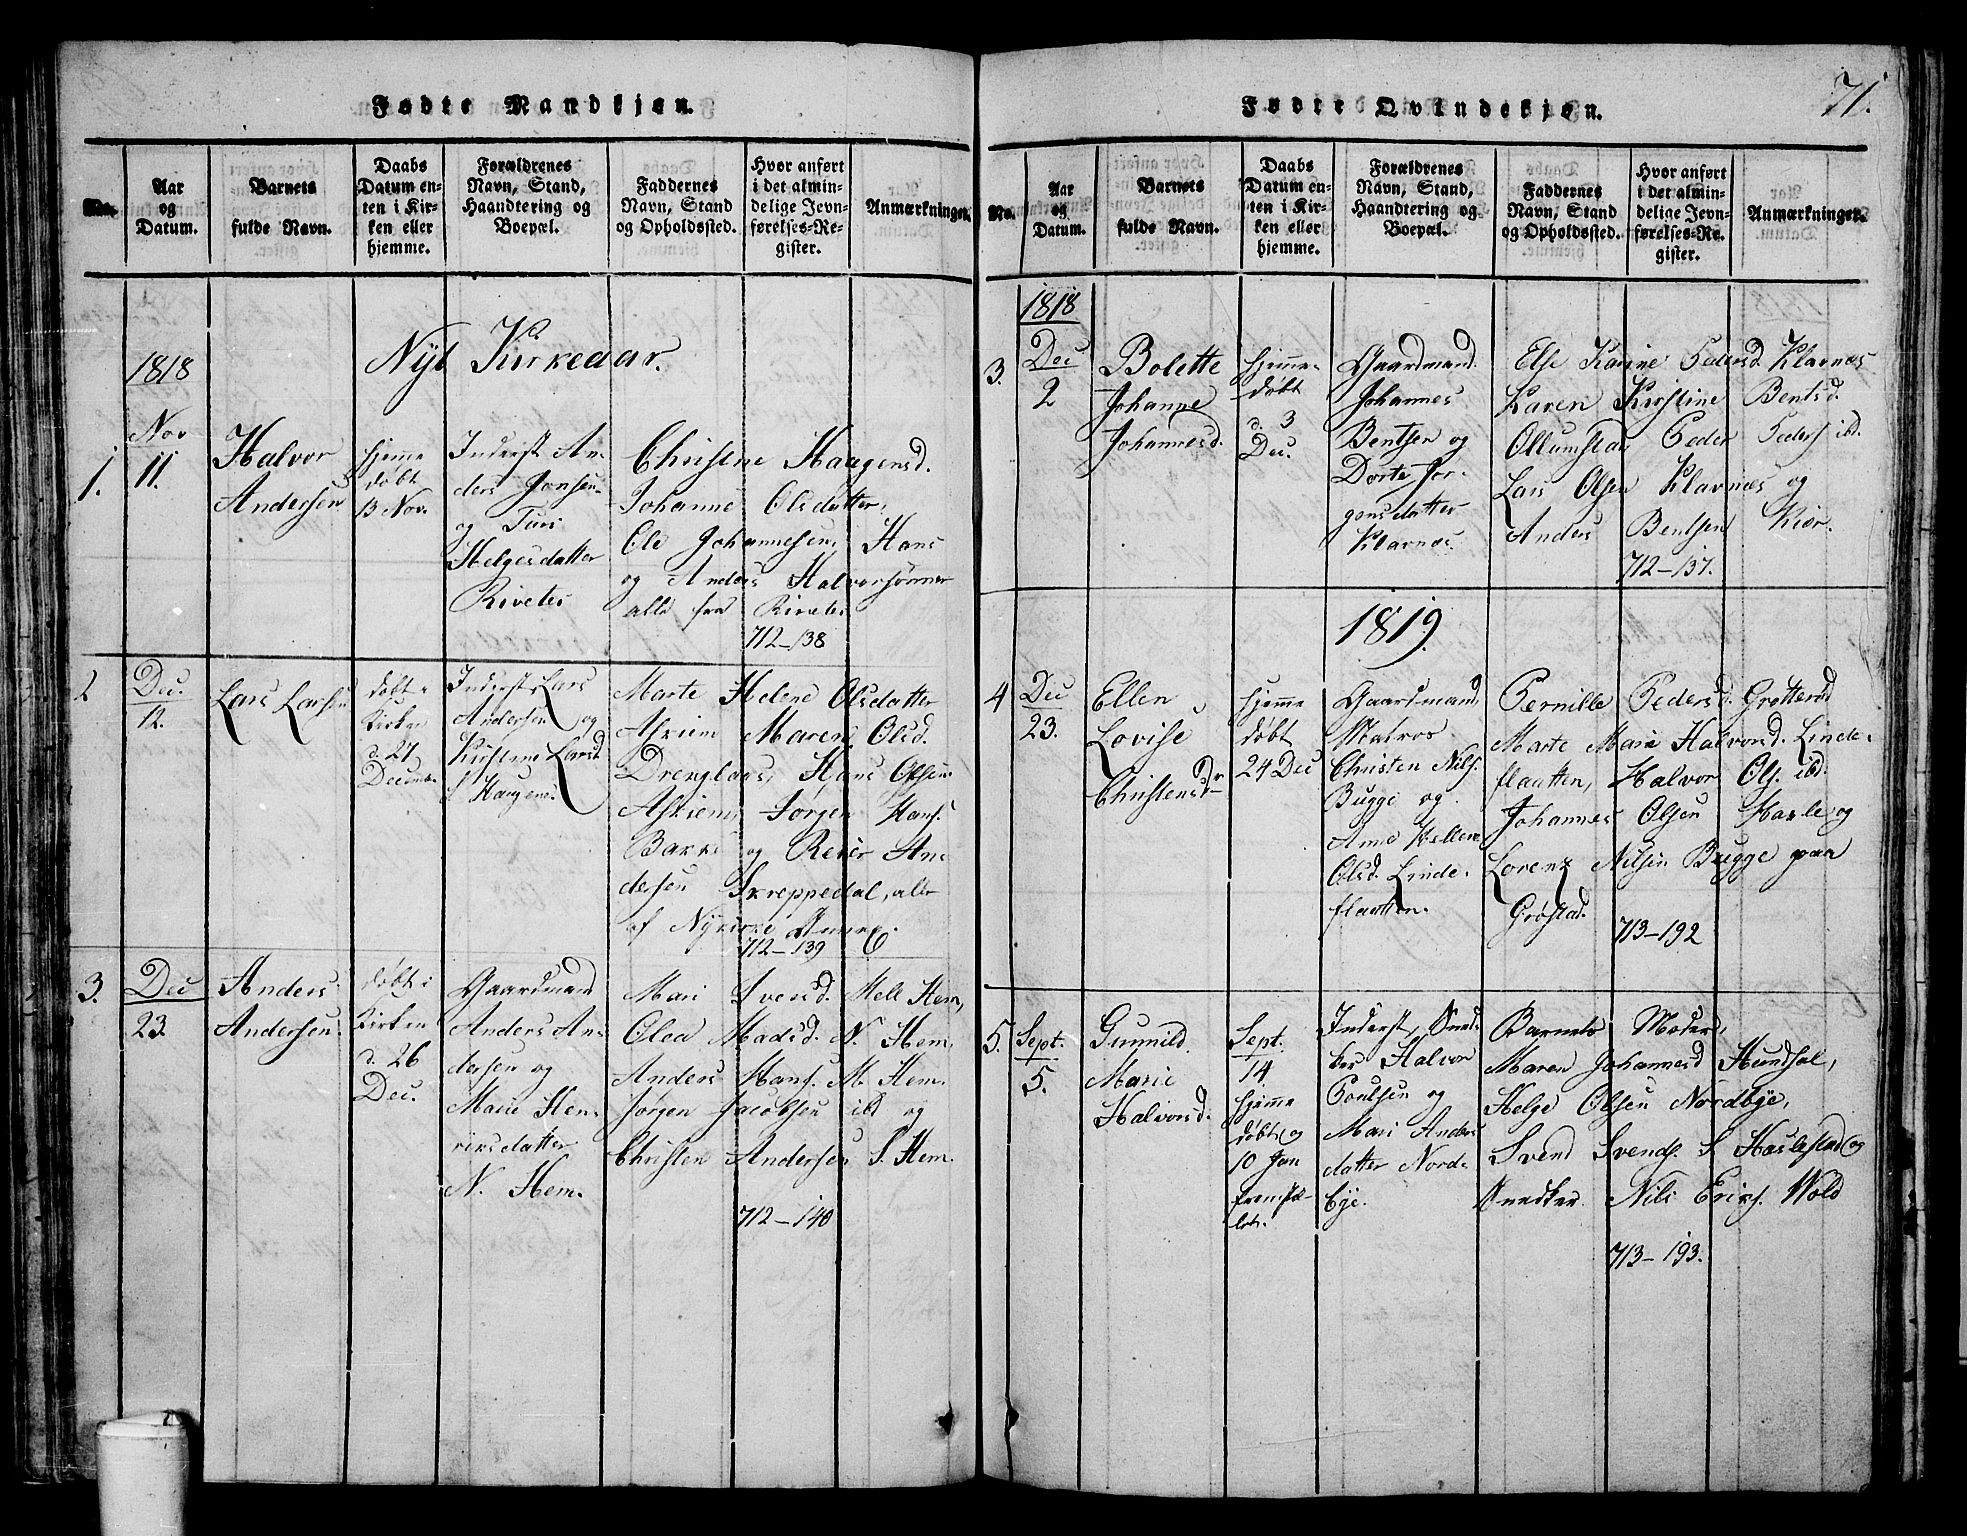 71.
Fødte Mandkjøn.
No.
Aar
og
Datum.
Barnets
fulde Navn.
Daabs
Datum en-
ten i Kir-
ken eller
hjemme.
Forældrenes
Navn, Stand,
Haandtering og
Boepæl.
Faddernes
Navn, Stand
og Opholdssted.
Hvor anført
i det almin-
delige Jevn-
førelses-Re-
gister.
Anmærkninger.
1818
Nyt Kirkeaar.
1.
Nov
11.
Halvor
Andersen
hjemme
døbt
13 Nov.
Inderst An-
ders Jonsen
og Turi
Helgesdatter
Rivetes
Christene Haagensd.
Johanne Olsdatter,
Ole Johannesen, Hans
og Anders Halvorsønner
alle fra Rivetes
712-138
2
Dec.
12.
Lars Larsen
døbt i
Kirken
d. 27
Decembr
Inderst Lars
Andersen og
Kirstine Larsd
S Haugene
Marte Helene Olsdatter
Askiem Maren Olsd.
Drenglaas, Hans Olsen
Askiem, Jørgen Hans.
Bakke og Reier An-
dersen Skreppedal, alle
af Nykirke Annex.
712-139
3.
Dec
23.
Anders
Andersen
døbt i
Kirken
d. 26
Dec.
Gaardmand
Anders An-
dersen og
Marie Hen-
riksdatter
N. Hem.
Mari Svensd. Mell Hem,
Olea Madsd. N. Hem,
Anders Hans. M. Hem.
Jørgen Jacobsen ibd og
Christen Andersen S. Hem.
712-140
Fødte Qvindekjøn.
No.
Aar
og
Datum.
Barnets
fulde Navn.
Daabs
Datum en-
ten i Kir-
ken eller
hjemme.
Forældrenes
Navn, Stand,
Haandtering og
Boepæl.
Faddernes
Navn, Stand
og Opholdssted.
Hvor anført
i det almin-
delige Jevn-
førelses-Re-
gister.
Anmærkninger.
1818
3.
Dec
2
Bolette
Johanne
Johannesd.
hjemme-
døbt
d. 3
Dec.
Gaardmand
Johannes
Bentsen og
Dorte Jør-
gensdatter
Klavnæs.
Else Karine Pedersd. Klavnæs
Karen Kirstine Bentsd.
Ollumstad Peder Peders ibd.
Lars Olsen Klavnæs og
Anders Bentsen Kiær.
712-137.
1819.
4
Dec
23.
Ellen
Lovise
Christensdr
hjemme
døbt
24 Dec
Gaardmand
Matros
Christen Nils.
Bugge og
Anne Hellene
Olsd. Linde-
flaatten.
Pernille Pedersd. Grøtterød
Marte Marie Halvorsd. Linde-
flaatten, Halvor Ols. ibd.
Johannes Olsen Hasle og
Lorenz Nilsen Bugge paa
Grøstad.
713-192
5.
Sept.
5.
Gunnild
Marie
Halvorsd.
Sept.
14.
hjemme
døbt og
10 Jan
fremstil-
let.
Inderst, Sned-
ker Halvor
Poulsen og
Mari Anders
datter Nord-
bye.
Barnets Moder,
Maren Johannesd Hundsal,
Helge Olsen Nordbye,
Svend Svends. S Haslestad og
Snedker Nils Eriks. Wold
713-193.